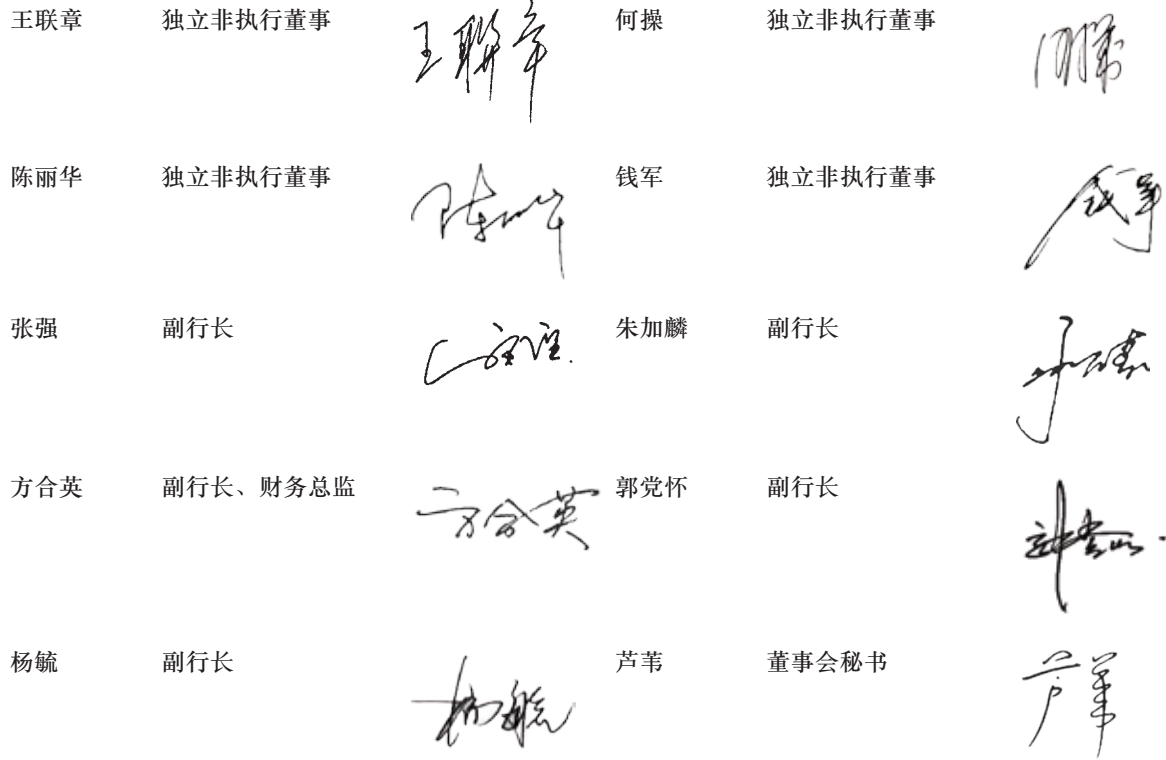 王联章 独立非执行董事 王聯章 何操 独立非执行董事
陈丽华 独立非执行董事 钱军 独立非执行董事
张强 副行长 朱加麟 副行长
方合英 副行长、财务总监 方合英 郭党怀 副行长
杨毓 副行长 杨毓 芦苇 董事会秘书 芦苇